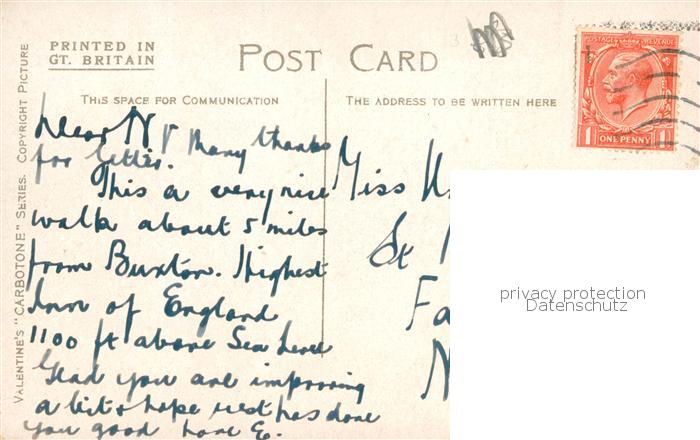 PRINTED IN
GT. BRITAIN
POST CARD
THIS SPACE FOR COMMUNICATION
THE ADDRESS TO BE WRITTEN HERE
VALENTINE'S "CARBOTONE" SERIES. COPYRIGHT PICTURE
POSTAGE REVENUE
1 ONE PENNY 1
Dear
many thanks
for letter.
This a very nice
walk about 5 miles
from Buxton. Highest
Inn of England
1100 ft above Sea Level
Glad you are improving
a bit & hope rest has done
you good love E.
Miss
St
Fa
N
privacy protection
Datenschutz